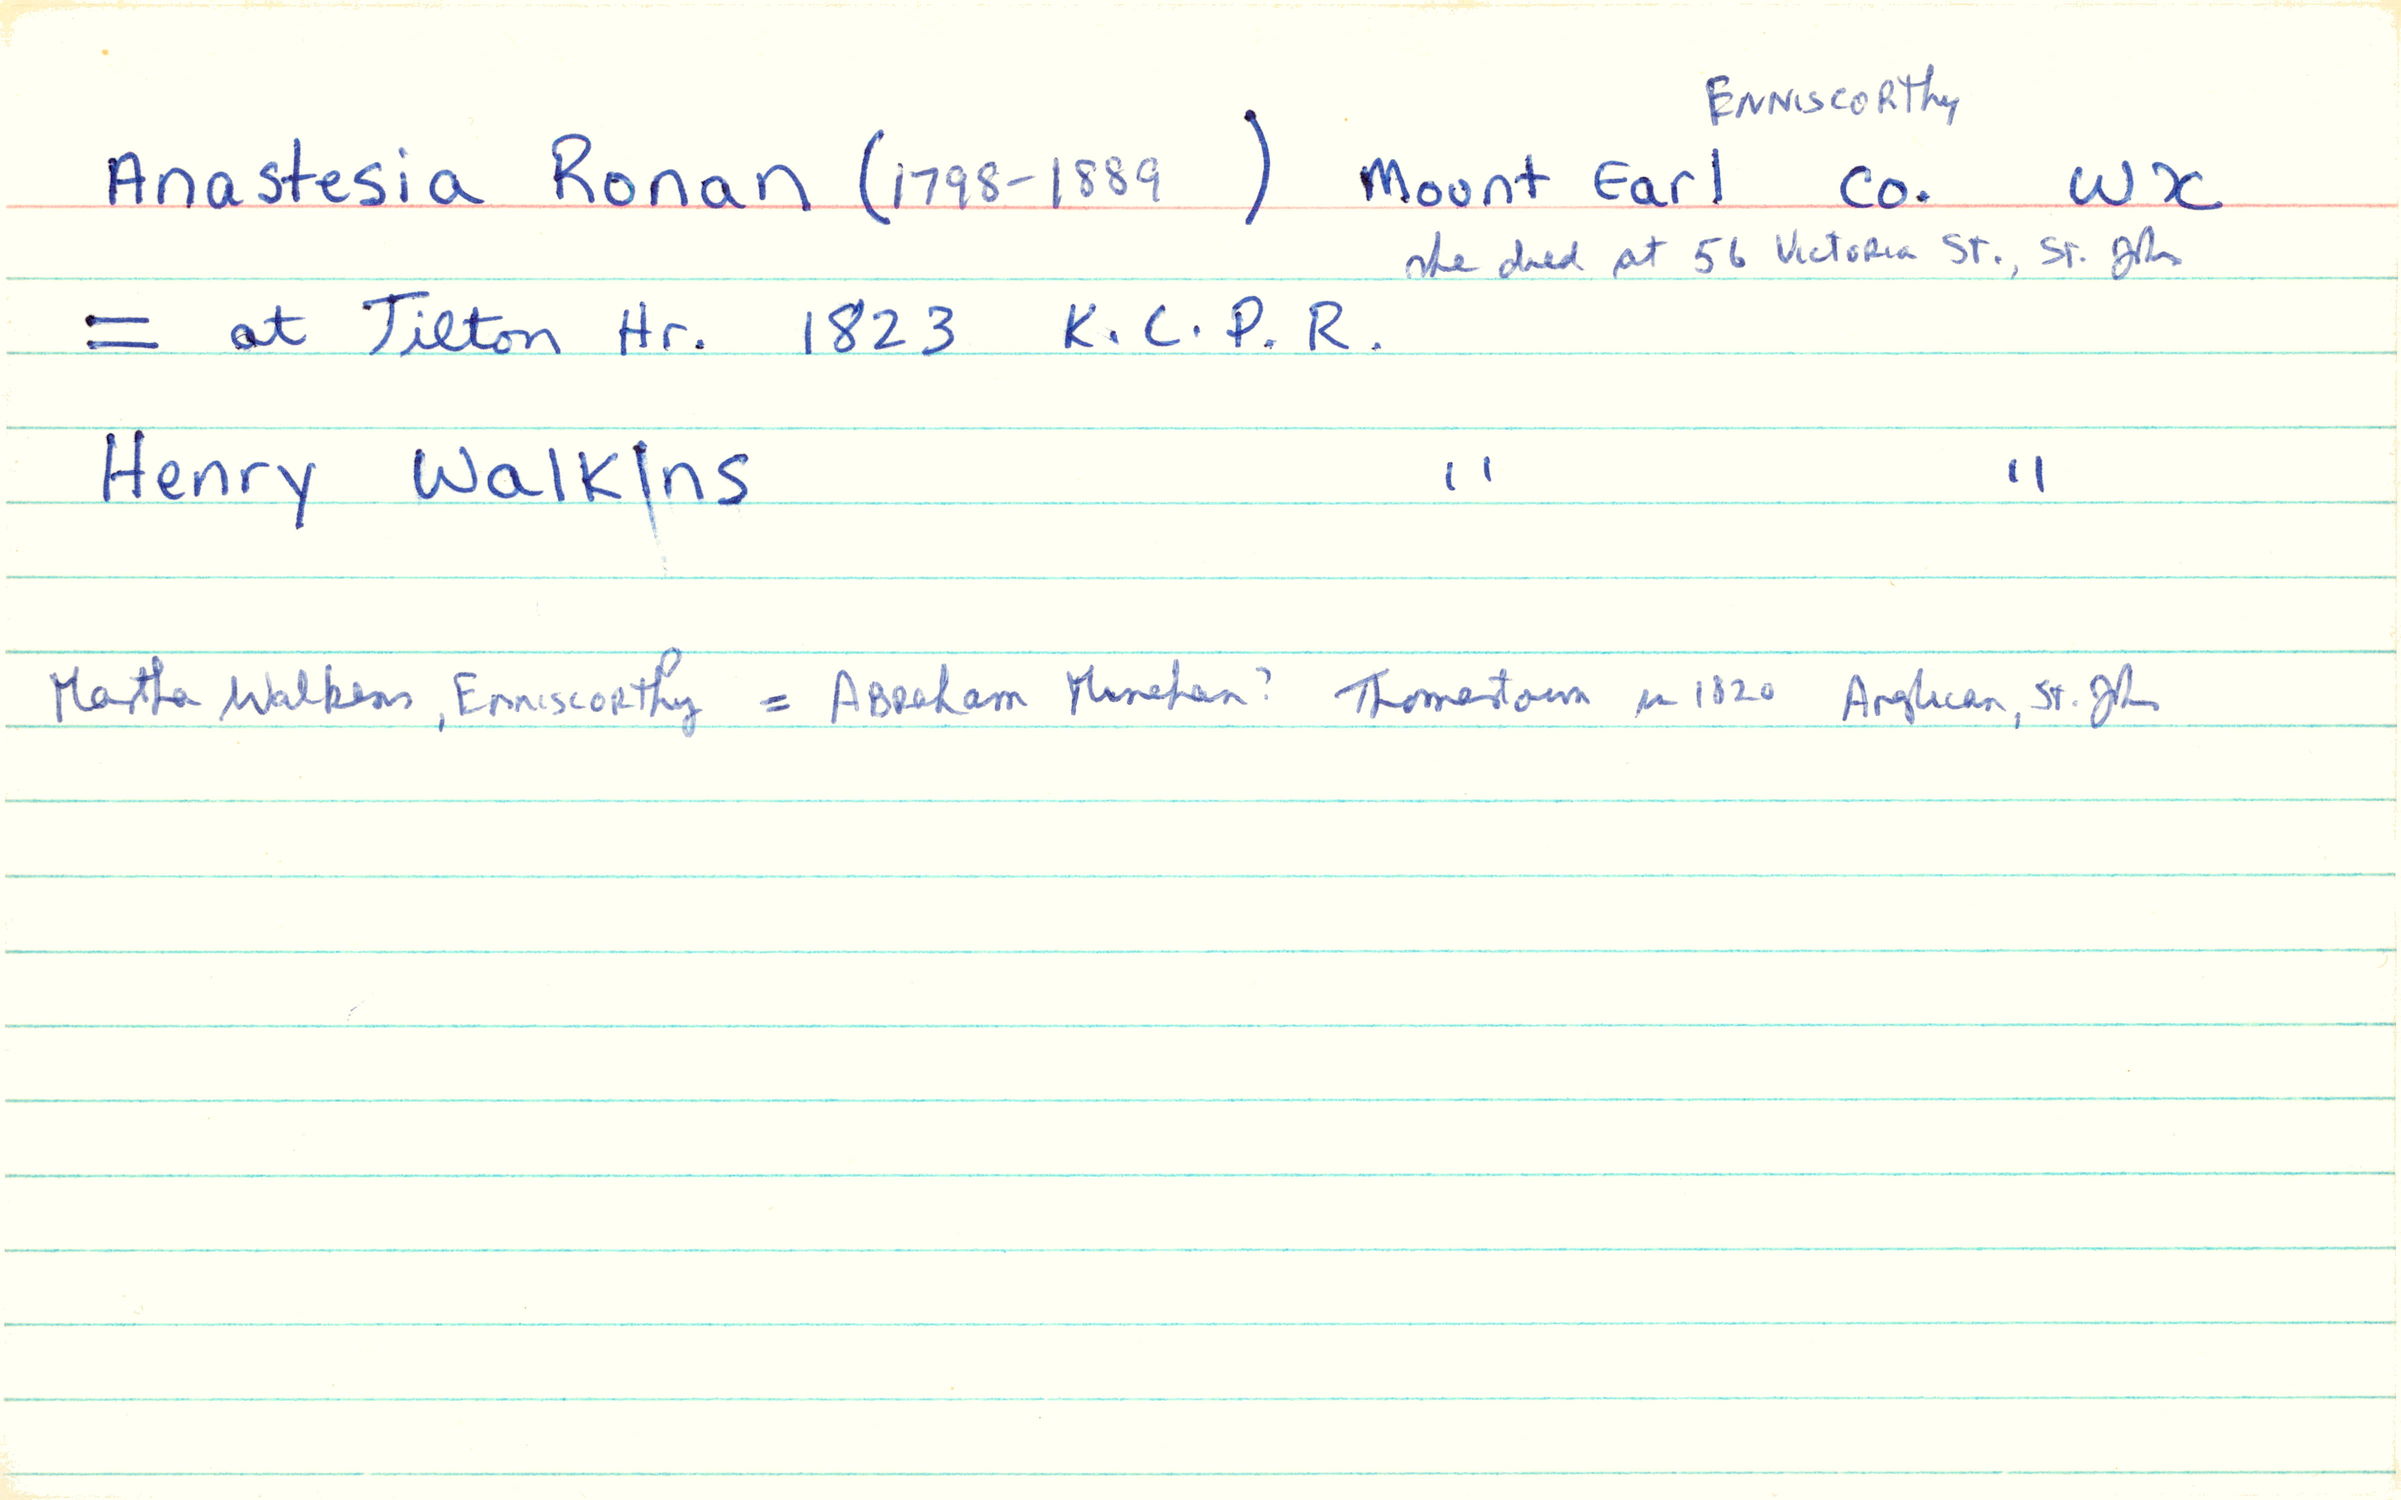 Enniscorthy
Anastesia Ronan (1798-1889 ) Mount Earl Co. Wx
she died at 56 Victoria St., St. John
= at Tilton Hr. 1823 K.C.P.R.
Henry Walkins " "
Martha Walkins, Enniscorthy = Abraham ? Thomastown in 1820 Anglican, St. John